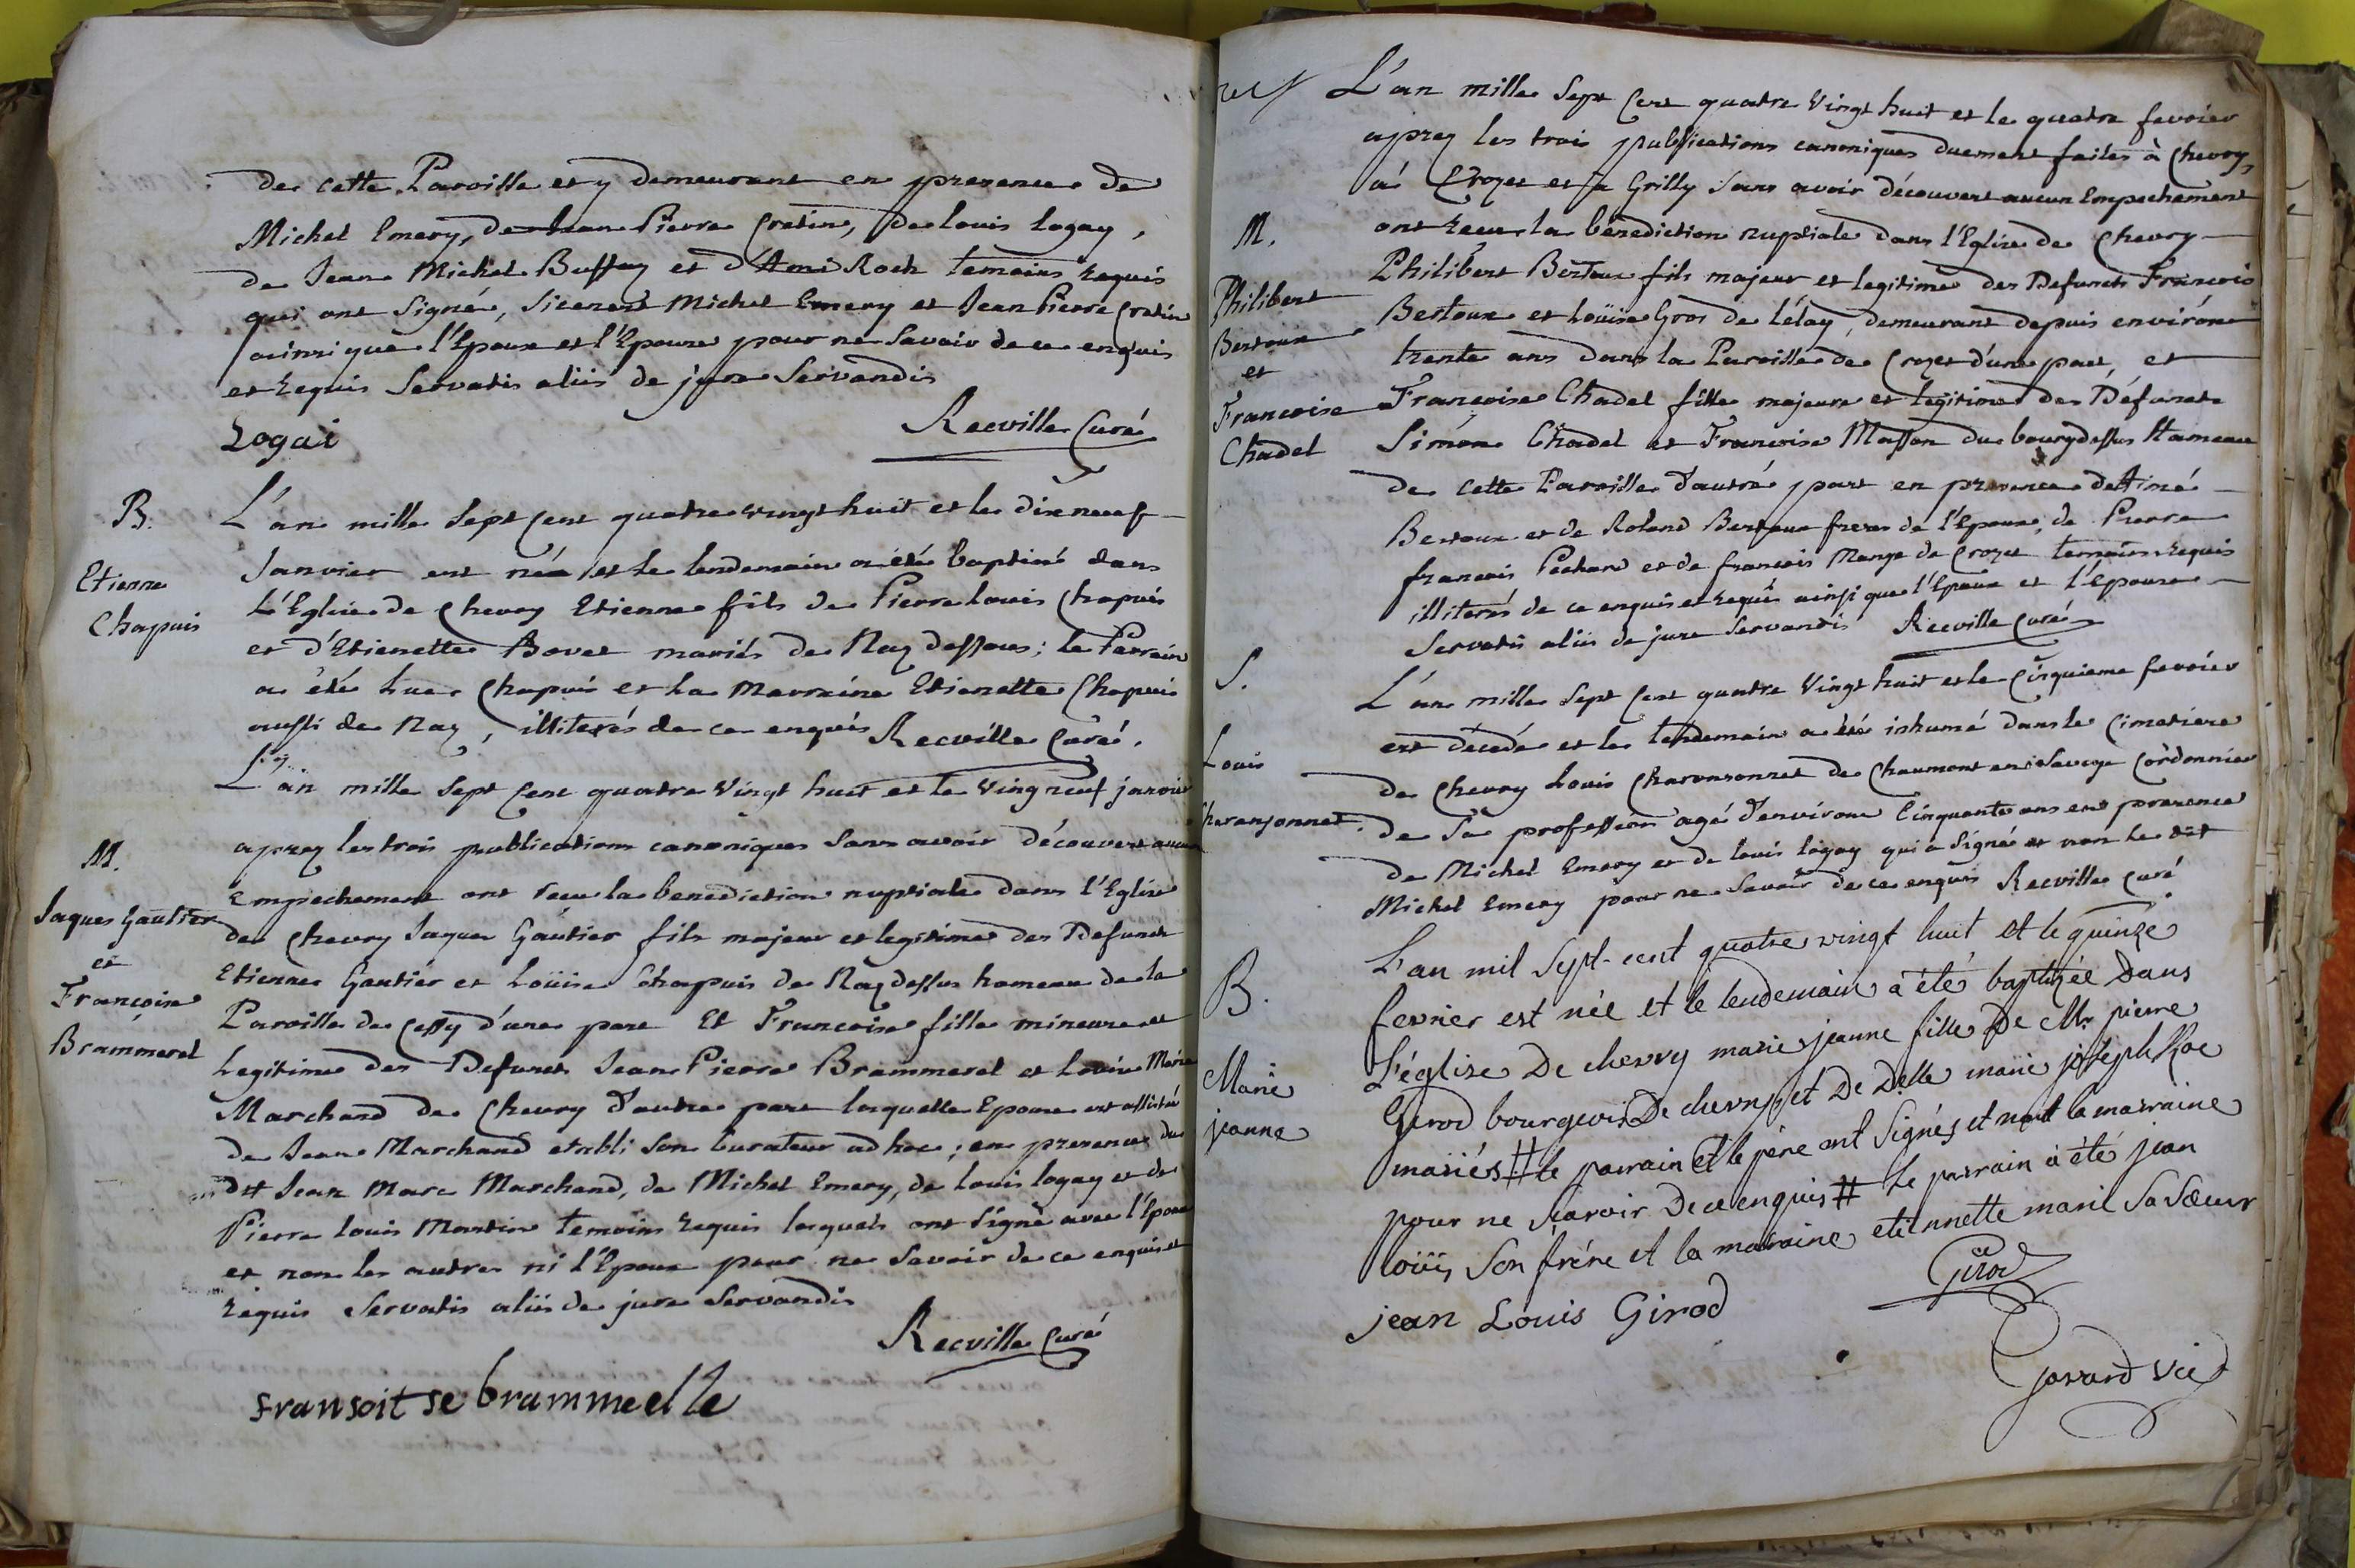 de cette Paroisse et y demeurant en presence de
Michel Emery, de Jean Pierre Cretin, de louis logay,
de Jean Michel Buffay et d'Ami Roch temoins requis
qui ont signé, sicenest Michel Emery et Jean Pierre Cretin
ainsi que l'Epoux et l'Epouse pour ne savoir de ce enquis
et requis servatis aliis de jure servandis
Logai
Recville Curé
B.
Etienne
Chapuis
L'an mille sept cent quatre vingt huit et le dix neuf
Janvier est né et le lendemain a été baptisé dans
L'Eglise de Chevry Etienne fils de Pierre louis Chapuis
et d'Etienette Bovet mariés de Naz dessous; le Parrain
a été Luc Chapuis et la Marraine Etienette Chapuis
aussi de Naz, illiterés de ce enquis Recville Curé.
M.
Jaques Gautier
et
Françoise
Brammerel
L'an mille sept cent quatre vingt huit et le vingt neuf janvier
aprez les trois publications canoniques sans avoir découvert aucun
Empechement ont recu la benediction nuptiale dans l'Eglise
de Chevry Jaques Gautier fils majeur et legitime des Defunts
Etienne Gautier et Loüise Chapuis de Naz dessus hameau de la
Paroisse de Cessy d'une part Et Françoise fille mineure et
legitime des Defunts Jean Pierre Brammerel et Louise Marie
Marchand de Chevry d'autre part laquelle Epouse est assistée
de Jean Marchand etabli son Curateur ad hoc; en presence du
dit Jean Marc Marchand, de Michel Emery, de louis logay et de
Pierre louis Martin temoins requis lesquels ont signé avec l'Epouse
et non les autres ni l'Epoux pour ne savoir de ce enquis et
requis servatis aliis de jure servandis
Recville Curé
fransoit se brammeelle
L'an mille sept cent quatre vingt huit et le quatre fevrier
aprez les trois publications canoniques duement faites à Chevry,
à Crozet et à Grilly sans avoir découvert aucun Empechement
ont recu la bénédiction nuptiale dans l'Eglise de Chevry
M.
Philibert
Bertoux
et
Françoise
Chadel
Philibert Bertoux fils majeur et legitime des Defunts François
Bertoux et Loüise Gros de Lélay, demeurant depuis environ
trente ans dans la Paroisse de Crozet d'une part, et
Françoise Chadel fille majeure et legitime des Défunts
Simon Chadel et Françoise Masson du bourgdessus Hameau
de cette Paroisse d'autre part en presence d'Aimé
Bertoux et de Roland Bertoux freres de l'Epoux, de Pierre
françois Pechard et de françois Mange de Crozet temoins requis
illiterés de ce enquis et requis ainsi que l'Epoux et l'Epouse
Servatis aliis de jure servandis Recville Curé
S.
Louis
Charansonnet.
L'an mille sept cent quatre vingt huit et le Cinquieme fevrier
est décedé et le lendemain a été inhumé dans le Cimetiere
de Chevry Louis Charansonnet de Chaumont en Savoye Cordonnier
de sa profession agé d'environ Cinquante ans en presence
de Michel Emery et de louis logay qui a signé et non le dit
Michel Emery pour ne savoir de ce enquis Recville curé
B.
Marie
jeanne
L'an mil sept-cent quatre vingt huit et le quinze
fevrier est née et le lendemain a été baptizée Dans
L'église De chevry marie jeanne fille De Mr pierre
Girod bourgeois De chevry, et De Delle marie joseph Roc
mariés # le parrain et le père ont signés et non la marraine
pour ne sçavoir De ce enquis # Le parrain à été jean
loüis son frère et la maraine etiennette marie sa sœur
Girod
jean Louis Girod
Gerard vic